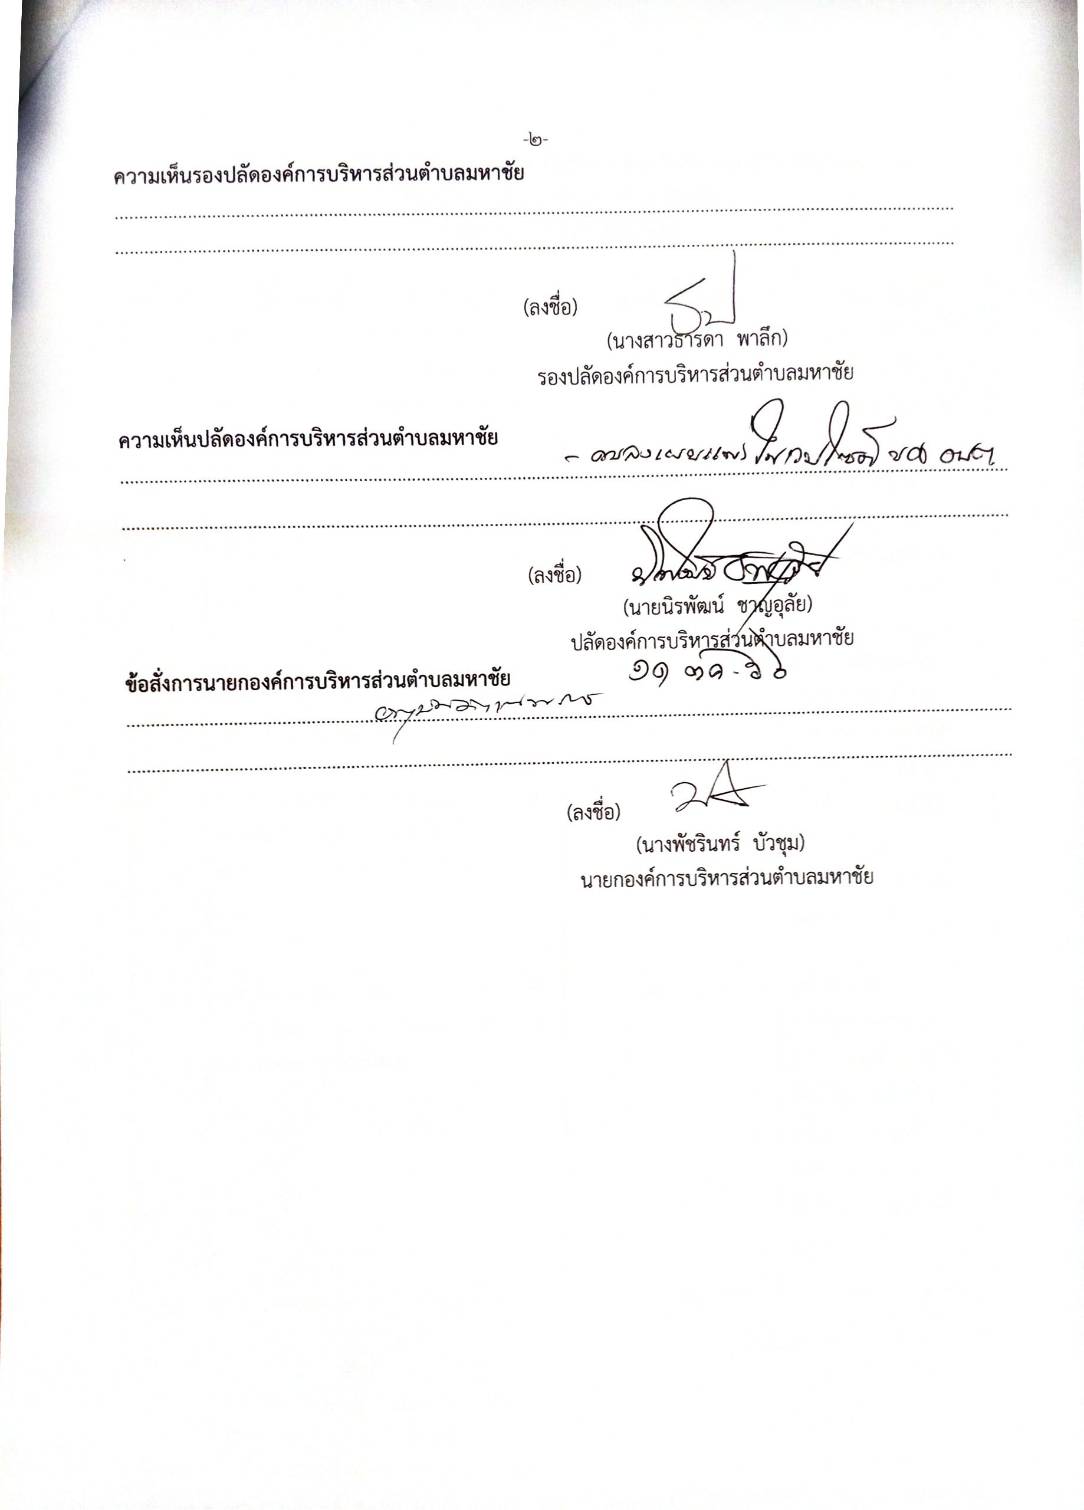 -๒-
ความเห็นรองปลัดองค์การบริหารส่วนตำบลมหาชัย
(ลงชื่อ)
(นางสาวธารดา พาลึก)
รองปลัดองค์การบริหารส่วนตำบลมหาชัย
ความเห็นปลัดองค์การบริหารส่วนตำบลมหาชัย
ลงเผยแพร่ในเวปไซต์ ของ อบต
(ลงชื่อ)
(นายนิรพัฒน์ ชาญอุลัย)
ปลัดองค์การบริหารส่วนตำบลมหาชัย
๑๑ ตค - ๖๖
ข้อสั่งการนายกองค์การบริหารส่วนตำบลมหาชัย
(ลงชื่อ)
(นางพัชรินทร์ บัวชุม)
นายกองค์การบริหารส่วนตำบลมหาชัย